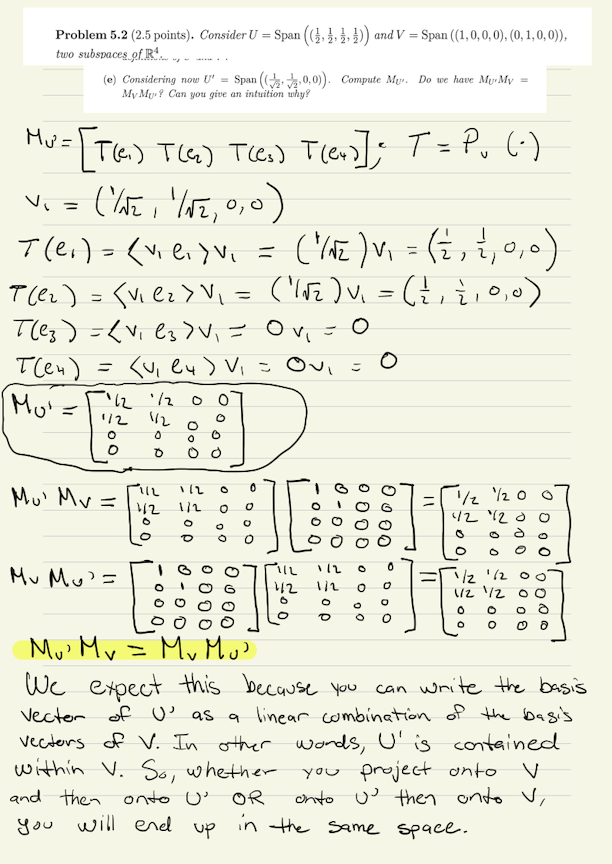 Problem 5.2 (2.5 points). Consider U = Span ((1/2, 1/2, 1/2, 1/2)) and V = Span ((1, 0, 0, 0), (0, 1, 0, 0)),
two subspaces of ℝ⁴.
(e) Considering now U' = Span ((1/√2, 1/√2, 0, 0)). Compute M_U'. Do we have M_U' M_V =
M_V M_U'? Can you give an intuition why?
M_U' = [T(e₁) T(e₂) T(e₃) T(e₄)]; T = P_U (·)
v₁ = (1/√2, 1/√2, 0, 0)
T(e₁) = <v₁ e₁>v₁ = (1/√2) v₁ = (1/2, 1/2, 0, 0)
T(e₂) = <v₁ e₂>v₁ = (1/√2) v₁ = (1/2, 1/2, 0, 0)
T(e₃) = <v₁ e₃>v₁ = 0v₁ = 0
T(e₄) = <v₁ e₄>v₁ = 0v₁ = 0
M_U' = [1/2 1/2 0 0
1/2 1/2 0 0
0 0 0 0
0 0 0 0]
M_U' M_V = [1/2 1/2 0 0 [1 0 0 0 = [1/2 1/2 0 0
1/2 1/2 0 0 0 1 0 0 1/2 1/2 0 0
0 0 0 0 0 0 0 0 0 0 0 0
0 0 0 0] 0 0 0 0] 0 0 0 0]
M_V M_U' = [1 0 0 0 [1/2 1/2 0 0 = [1/2 1/2 0 0
0 1 0 0 1/2 1/2 0 0 1/2 1/2 0 0
0 0 0 0 0 0 0 0 0 0 0 0
0 0 0 0] 0 0 0 0] 0 0 0 0]
M_U' M_V = M_V M_U'
We expect this because you can write the basis
vector of U' as a linear combination of the basis
vectors of V. In other words, U' is contained
within V. So, whether you project onto V
and then onto U' OR onto U' then onto V,
you will end up in the same space.